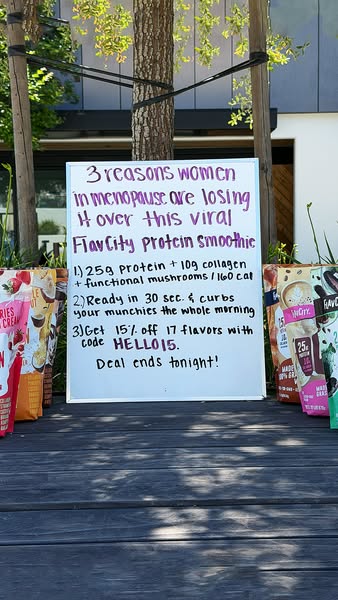 3 reasons women
in menopause are losing
it over this viral
FlavCity protein smoothie
1) 25g protein + 10g collagen
+ functional mushrooms / 160 cal
2) Ready in 30 sec. & curbs
your munchies the whole morning
3) Get 15% off 17 flavors with
code HELLO15.
Deal ends tonight!